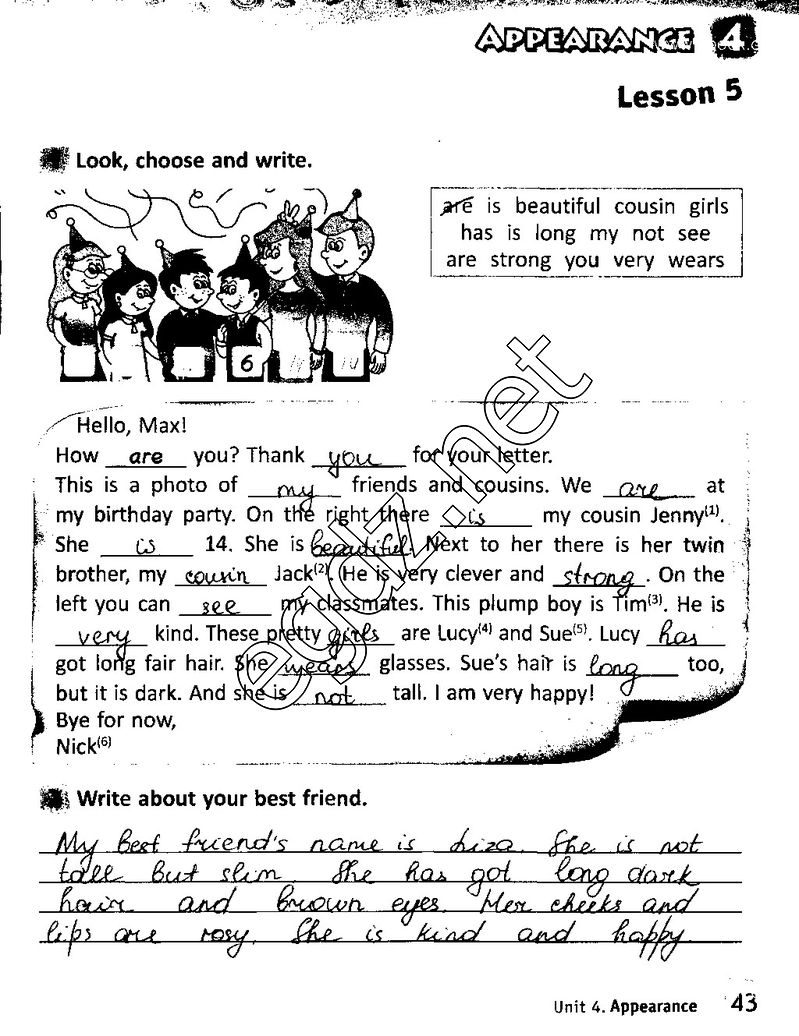 APPEARANCE 4
Lesson 5
Look, choose and write.
are is beautiful cousin girls
has is long my not see
are strong you very wears
6
Hello, Max!
How are you? Thank you for your letter.
This is a photo of my friends and cousins. We are at
my birthday party. On the right there is my cousin Jenny(1).
She is 14. She is beautiful. Next to her there is her twin
brother, my cousin Jack(2). He is very clever and strong. On the
left you can see my classmates. This plump boy is Tim(3). He is
very kind. These pretty girls are Lucy(4) and Sue(5). Lucy has
got long fair hair. She wears glasses. Sue's hair is long too,
but it is dark. And she is not tall. I am very happy!
Bye for now,
Nick(6)
egdz.net
Write about your best friend.
My best friend's name is Liza. She is not
tall but slim. She has got long dark
hair and brown eyes. Her cheeks and
lips are rosy. She is kind and happy.
Unit 4. Appearance 43